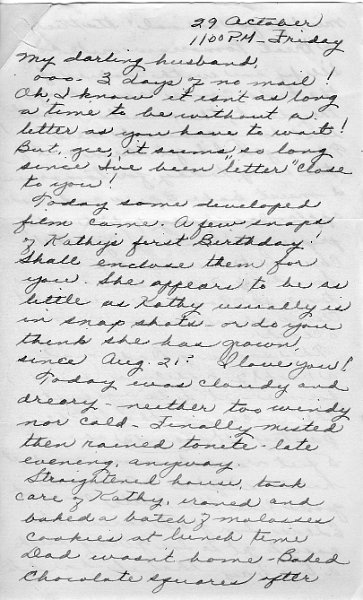 29 October
11:00 P.M. - Friday
My darling husband,
Ooo - 3 days of no mail!
Oh, I know it isn't as long
a time to be without a
letter as you have to wait!
But, gee, it seems so long
since I've been "letter" close
to you!
Today some developed
film came. A few snaps
of Kathy's first Birthday!
Shall enclose them for
you. She appears to be as
little as Kathy usually is
in snap shots - or do you
think she has grown
since Aug. 21? I love you!
Today was cloudy and
dreary - neither too windy
nor cold - Finally misted
then rained tonite - late
evening, anyway.
Straightened house, took
care of Kathy, ironed and
baked a batch of molasses
cookies at lunch time
Dad wasn't home - Baked
chocolate squares after